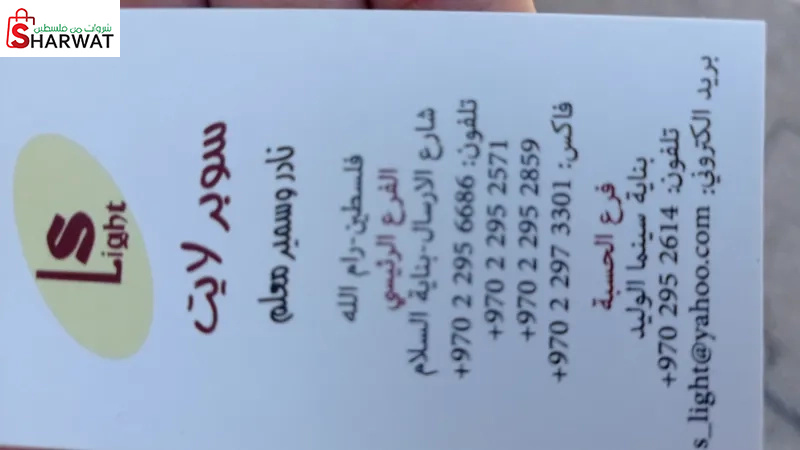 شروات من فلسطين
SHARWAT
LS
Light
سوبر لايت
نادر وسمير معلم
فلسطين-رام الله
الفرع الرئيسي
شارع الارسال-بناية السلام
تلفون: 6686 295 2 970+
+970 2 295 2571
+970 2 295 2859
فاكس: 3301 297 2 970+
فرع الحسبة
بناية سينما الوليد
تلفون: 2614 295 970+
بريد الكتروني: s_light@yahoo.com